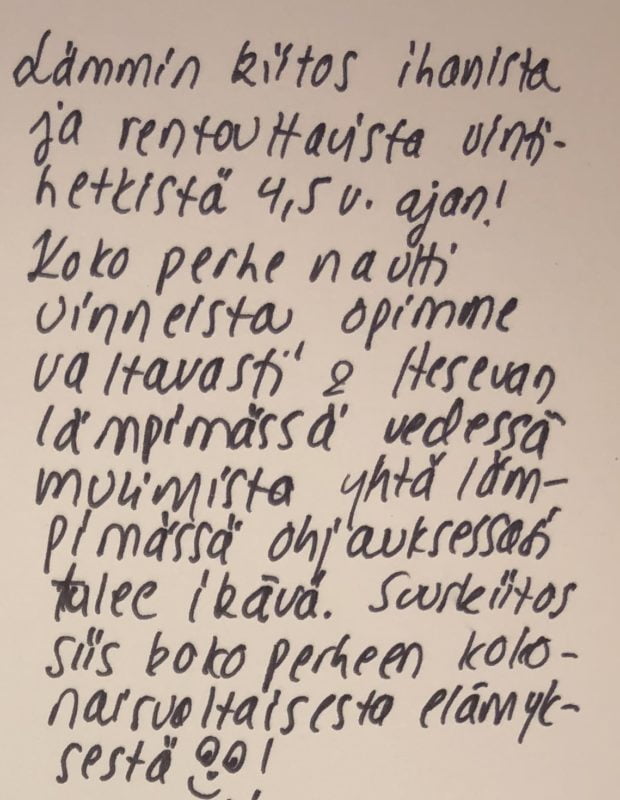 Lämmin kiitos ihanista
ja rentouttavista uinti-
hetkistä 4,5 v. ajan!
Koko perhe nautti
uinneista, opimme
valtavasti & Itsevan
lämpimässä vedessä
uimista yhtä läm-
pimässä ohjauksessasi
tulee ikävä. Suurkiitos
siis koko perheen koko-
naisvaltaisesta elämyk-
sestä !